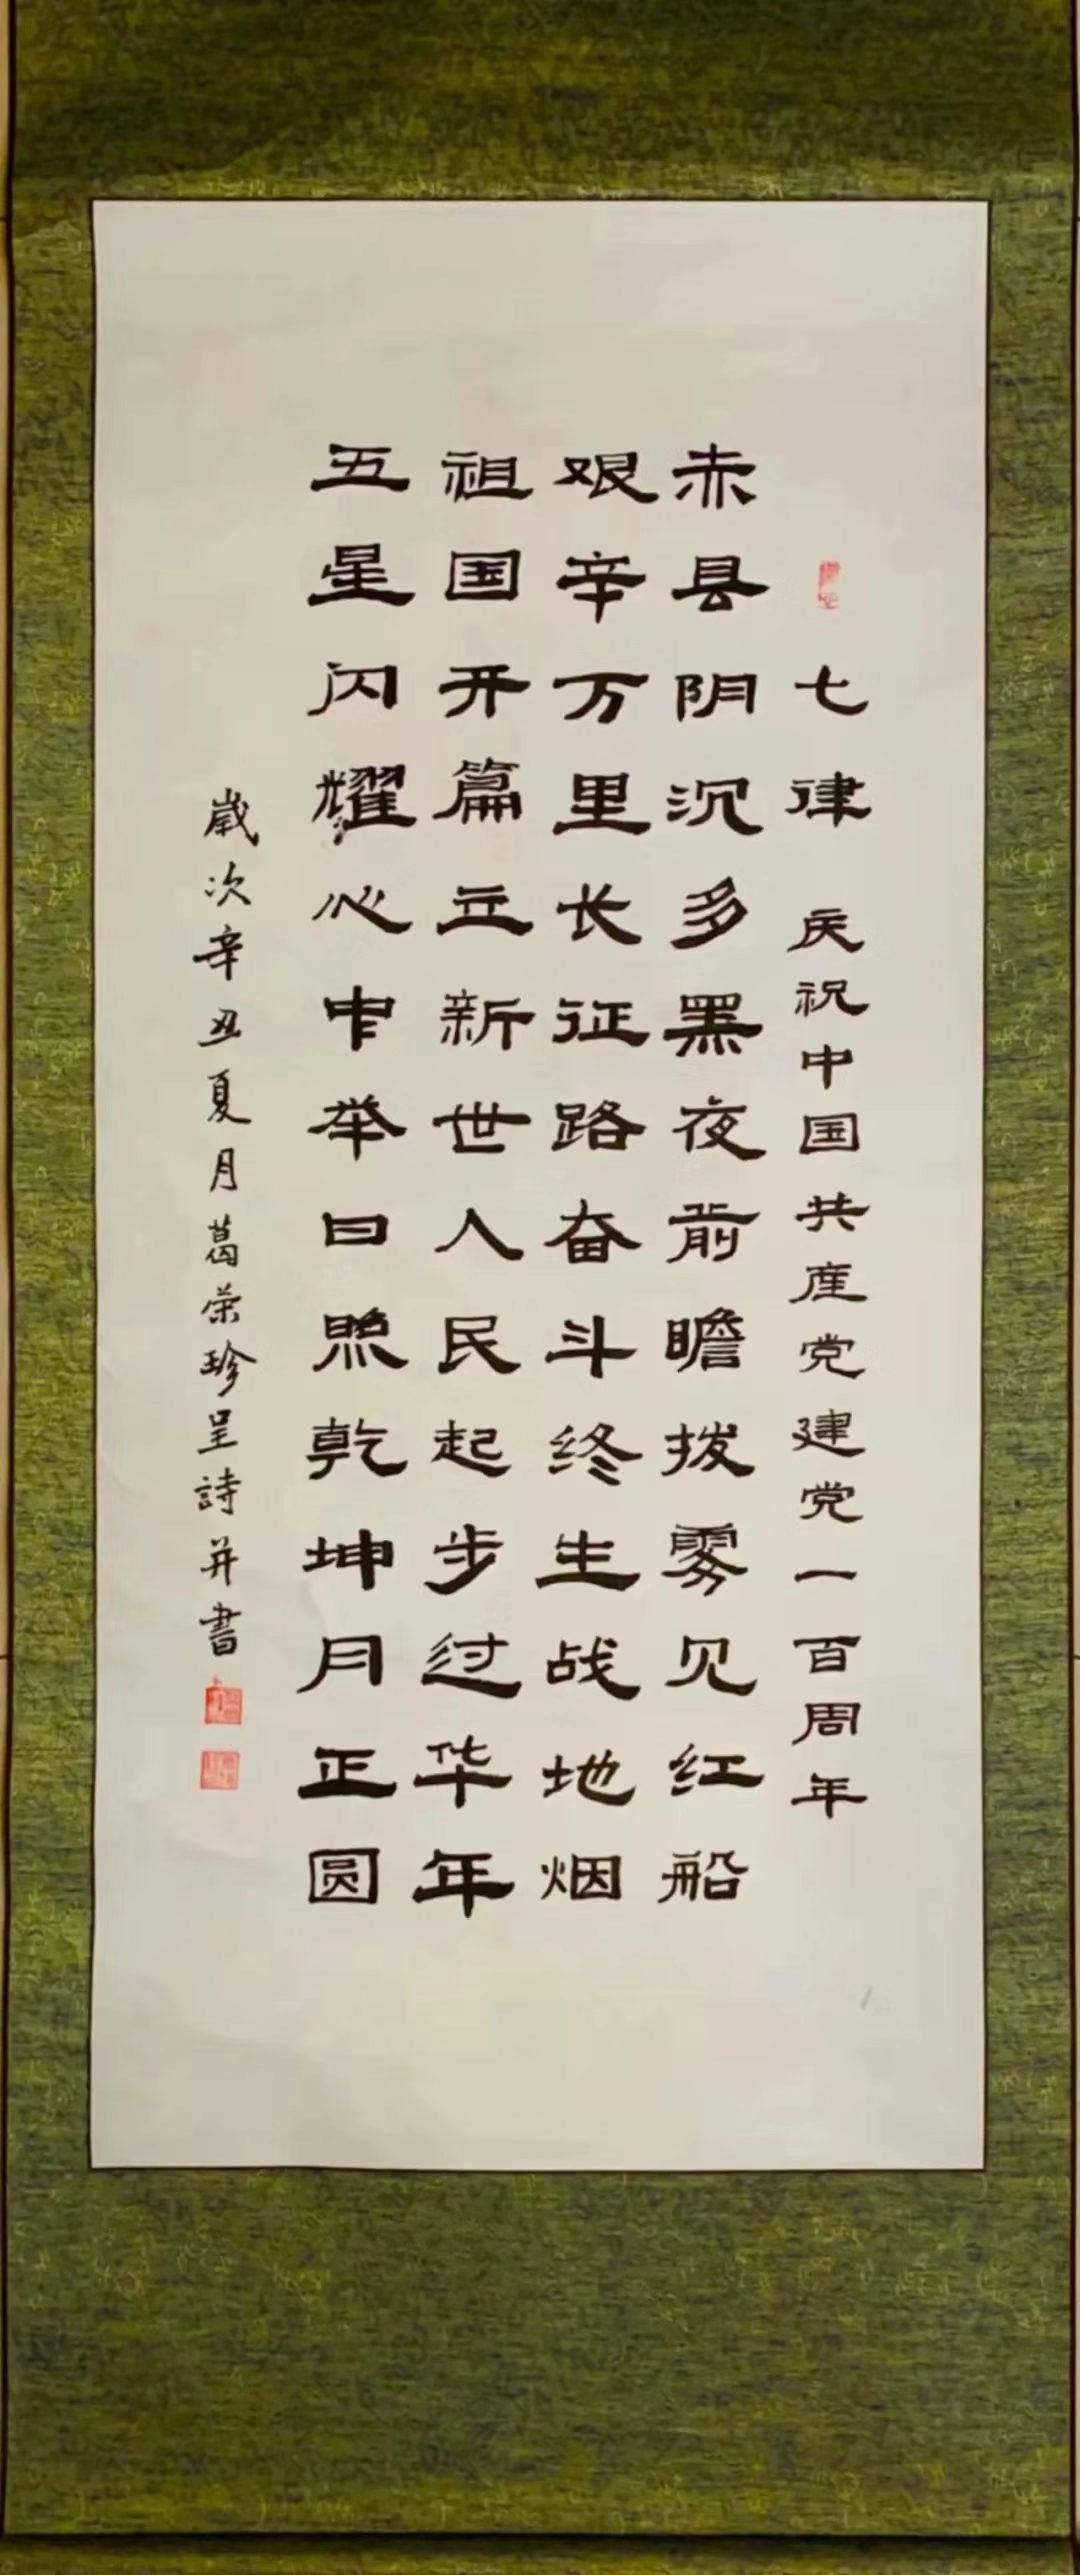 七律 庆祝中国共产党建党一百周年
赤县阴沉多黑夜前瞻拨雾见红船
艰辛万里长征路奋斗终生战地烟
祖国开篇立新世人民起步过华年
五星闪耀心中举日照乾坤月正圆
歲次辛丑夏月葛荣珍呈詩并書